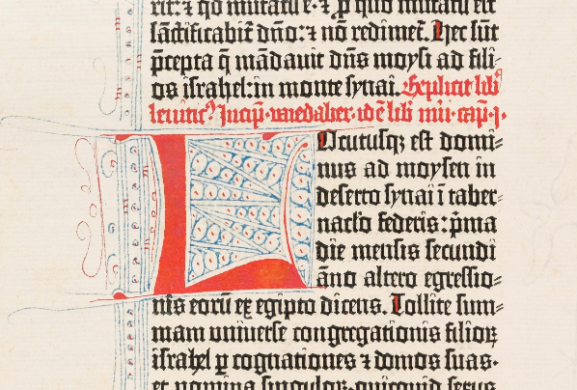 rit: ⁊ qđ mutatū ē · ⁊ ꝓ quo mutatū est
sāctificabit͛ dn̄o: ⁊ nō redimet͛. Hec sūt
p̄cepta q̄ mādauit dn̄s moysi ad fili-
os israhel: in monte synai. Explicit lib͛
leuitic⁹ Incip̄ · vaiedaber · idē lib͛ nūi · cap̄ · j ·
LOcutusq; est domi-
nus ad moysen in
deserto synai ī taber-
naclo federis: p̄ma
die mensis secundi
āno altero egressio-
nis eorū ex egipto dicens. Tollite sum-
mam vniuerse congregationis filioꝝ
israhel ꝑ cognationes ⁊ domos suas ·
et nomina singuloꝝ · quicquid sexus